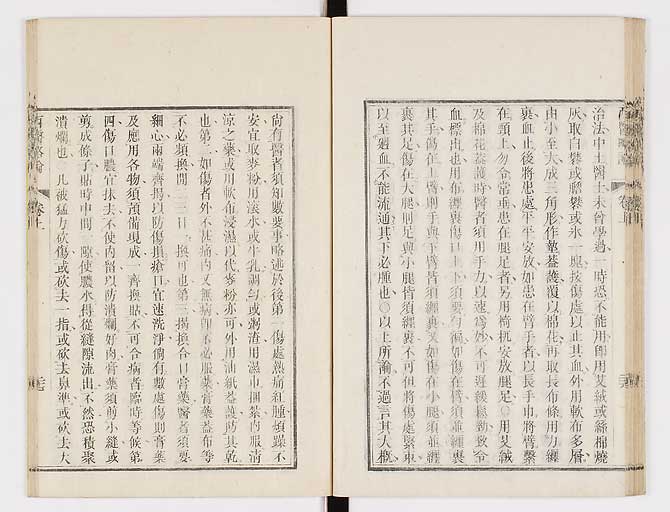 治法中土醫士未曾學過一時恐不能用卽用艾絨或絲棉燒
灰取白礬或膽礬或氷一塊按傷處以止其血外用軟布多層
由小至大成三角形作墊蓋護覆以棉花再取長布條用力纏
裹血止後將患處平平安放如患在臂手者以長手巾將臂繫
在頸上勿令常垂患在腿足者另用椅扺安放腿足○用艾絨
及棉花蓋護時醫者須用手力以速爲妙不可遲緩鬆勁致令
血標出也用布纏裹傷口上下須要勻徧如傷在臂須並纏裹
其手傷在上臂則手與下臂皆須纏裹又如傷在小腿須並纏
裹其足傷在大腿則足與小腿皆須纏裹不可但將傷處緊束
以至廻血不能流通其下必腫也○以上所論不過言其大概
尚有醫者須知數要事略述於後第一傷處熱痛紅腫煩躁不
安宜取麥粉用滾水或牛乳調勻或粥渣用濕巾捆紮內服淸
涼之藥或用軟布浸濕以代麥粉亦可外用油紙蓋護防其乾
也第二如傷者外不甚痛內又無病卽不必服藥膏藥蓋布等
不必頻換間二三日一換可也第三揭換合口膏藥醫者須要
細心兩端齊揭以防傷損瘡口宜速洗淨倘有數處傷則膏藥
及應用各物須預備現成一齊換貼不可令病者臨時等候第
四傷口膿宜抹去不使內留以防潰爛好肉膏藥須剪小縫或
剪成條子貼時中間一隙使膿水得從縫隙流出不然恐積聚
潰爛也 凡被猛力砍傷或砍去一指或砍去鼻準或砍去大
西醫略論 卷上